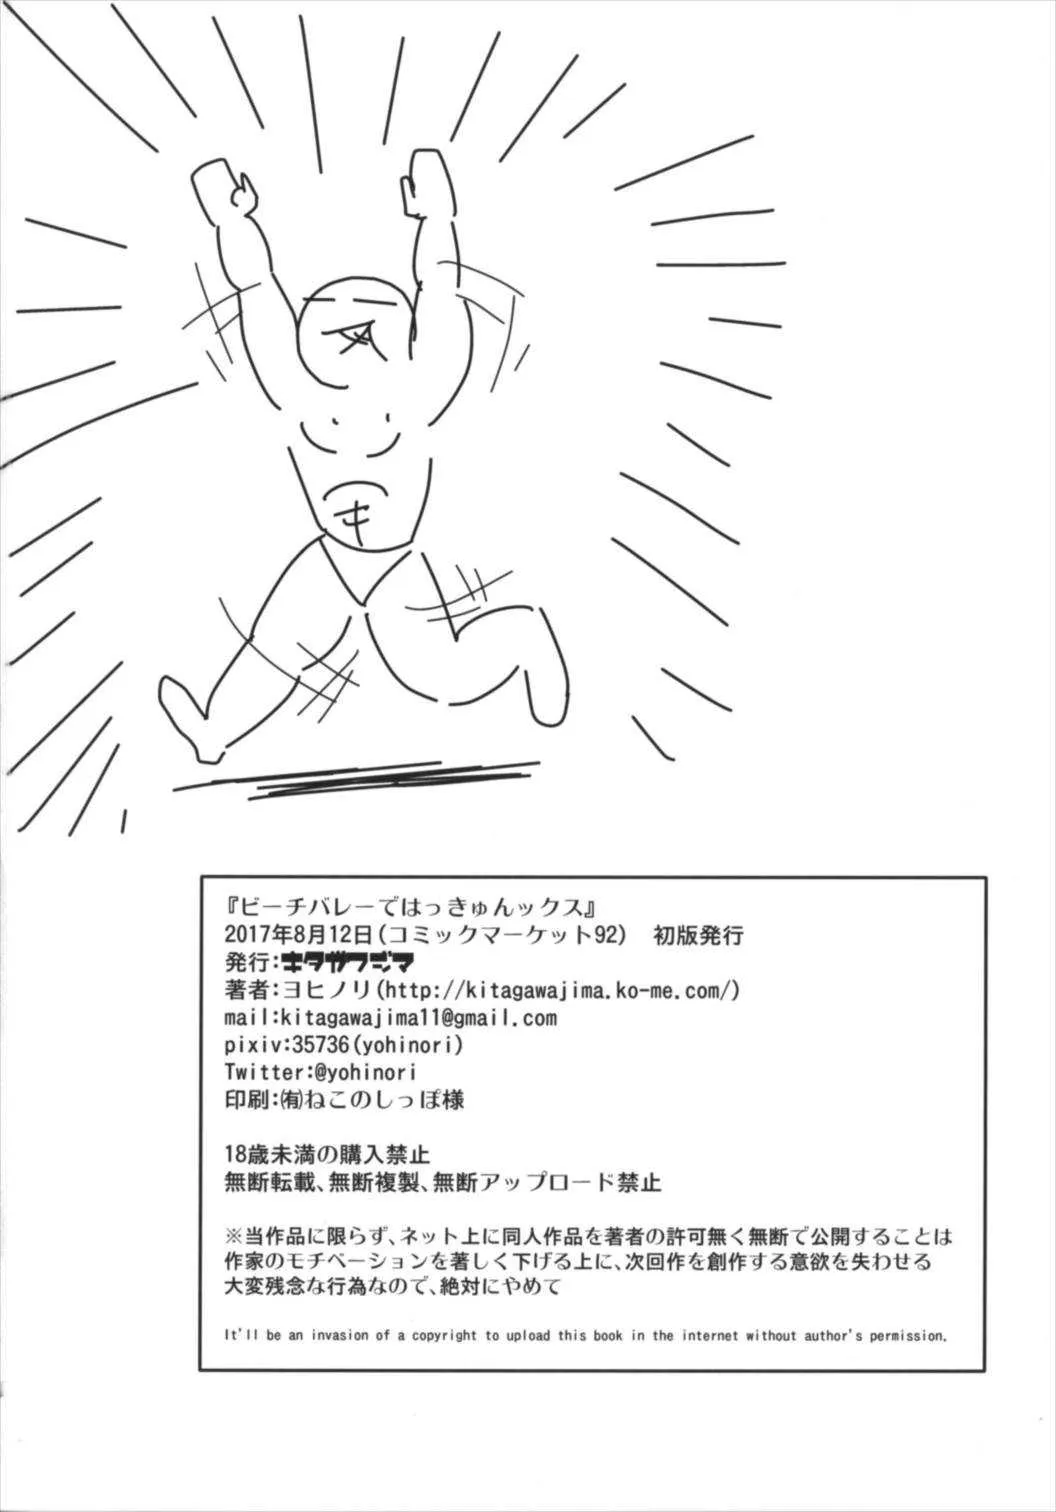 『ビーチバレーではっきゅんックス』
2017年8月12日(コミックマーケット92)　初版発行
発行:キタガワジマ
著者:ヨヒノリ(http://kitagawajima.ko-me.com/)
mail:kitagawajima11@gmail.com
pixiv:35736(yohinori)
Twitter:@yohinori
印刷:㈲ねこのしっぽ様
18歳未満の購入禁止
無断転載、無断複製、無断アップロード禁止
※当作品に限らず、ネット上に同人作品を著者の許可無く無断で公開することは
作家のモチベーションを著しく下げる上に、次回作を創作する意欲を失わせる
大変残念な行為なので、絶対にやめて
It'll be an invasion of a copyright to upload this book in the internet without author's permission.